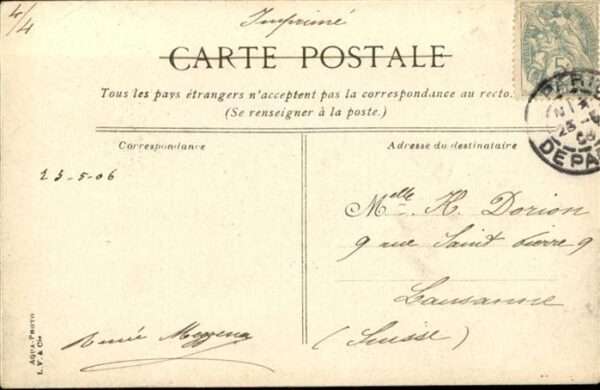 4/4
Imprimé
CARTE POSTALE
Tous les pays étrangers n'acceptent pas la correspondance au recto.
(Se renseigner à la poste.)
Correspondance
Adresse du destinataire
23-5-06
Melle H. Dorion
9 rue Saint Pierre 9
Lausanne
(Suisse)
Renée
AQUA-PHOTO
L. V. & Cie
5
PARIS
DEPAR